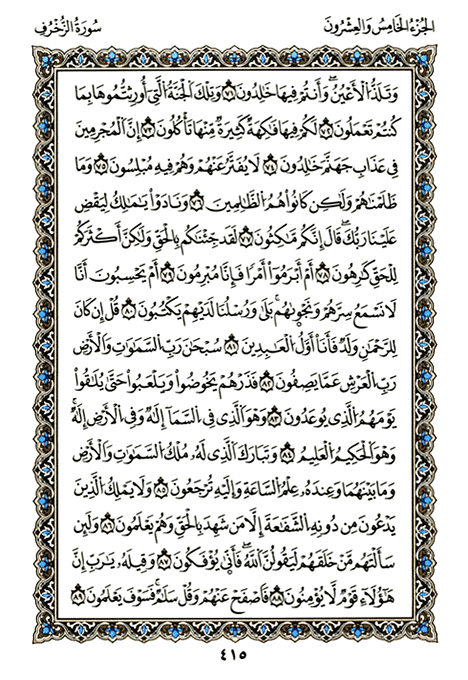 الجُزْءُ الخَامِسُ وَالعِشْرُونَ
سُورَةُ الزُّخْرُفِ
وَتَلَذُّ الْأَعْيُنُ ۖ وَأَنتُمْ فِيهَا خَالِدُونَ ٧١ وَتِلْكَ الْجَنَّةُ الَّتِي أُورِثْتُمُوهَا بِمَا
كُنتُمْ تَعْمَلُونَ ٧٢ لَكُمْ فِيهَا فَاكِهَةٌ كَثِيرَةٌ مِّنْهَا تَأْكُلُونَ ٧٣ إِنَّ الْمُجْرِمِينَ
فِي عَذَابِ جَهَنَّمَ خَالِدُونَ ٧٤ لَا يُفَتَّرُ عَنْهُمْ وَهُمْ فِيهِ مُبْلِسُونَ ٧٥ وَمَا
ظَلَمْنَاهُمْ وَلَٰكِن كَانُوا هُمُ الظَّالِمِينَ ٧٦ وَنَادَوْا يَا مَالِكُ لِيَقْضِ
عَلَيْنَا رَبُّكَ ۖ قَالَ إِنَّكُم مَّاكِثُونَ ٧٧ لَقَدْ جِئْنَاكُم بِالْحَقِّ وَلَٰكِنَّ أَكْثَرَكُمْ
لِلْحَقِّ كَارِهُونَ ٧٨ أَمْ أَبْرَمُوا أَمْرًا فَإِنَّا مُبْرِمُونَ ٧٩ أَمْ يَحْسَبُونَ أَنَّا
لَا نَسْمَعُ سِرَّهُمْ وَنَجْوَاهُم ۚ بَلَىٰ وَرُسُلُنَا لَدَيْهِمْ يَكْتُبُونَ ٨٠ قُلْ إِن كَانَ
لِلرَّحْمَٰنِ وَلَدٌ فَأَنَا أَوَّلُ الْعَابِدِينَ ٨١ سُبْحَانَ رَبِّ السَّمَاوَاتِ وَالْأَرْضِ
رَبِّ الْعَرْشِ عَمَّا يَصِفُونَ ٨٢ فَذَرْهُمْ يَخُوضُوا وَيَلْعَبُوا حَتَّىٰ يُلَاقُوا
يَوْمَهُمُ الَّذِي يُوعَدُونَ ٨٣ وَهُوَ الَّذِي فِي السَّمَاءِ إِلَٰهٌ وَفِي الْأَرْضِ إِلَٰهٌ ۚ
وَهُوَ الْحَكِيمُ الْعَلِيمُ ٨٤ وَتَبَارَكَ الَّذِي لَهُ مُلْكُ السَّمَاوَاتِ وَالْأَرْضِ
وَمَا بَيْنَهُمَا وَعِندَهُ عِلْمُ السَّاعَةِ وَإِلَيْهِ تُرْجَعُونَ ٨٥ وَلَا يَمْلِكُ الَّذِينَ
يَدْعُونَ مِن دُونِهِ الشَّفَاعَةَ إِلَّا مَن شَهِدَ بِالْحَقِّ وَهُمْ يَعْلَمُونَ ٨٦ وَلَئِن
سَأَلْتَهُم مَّنْ خَلَقَهُمْ لَيَقُولُنَّ اللَّهُ ۖ فَأَنَّىٰ يُؤْفَكُونَ ٨٧ وَقِيلِهِ يَا رَبِّ إِنَّ
هَٰؤُلَاءِ قَوْمٌ لَّا يُؤْمِنُونَ ٨٨ فَاصْفَحْ عَنْهُمْ وَقُلْ سَلَامٌ ۚ فَسَوْفَ يَعْلَمُونَ ٨٩
٤١٥